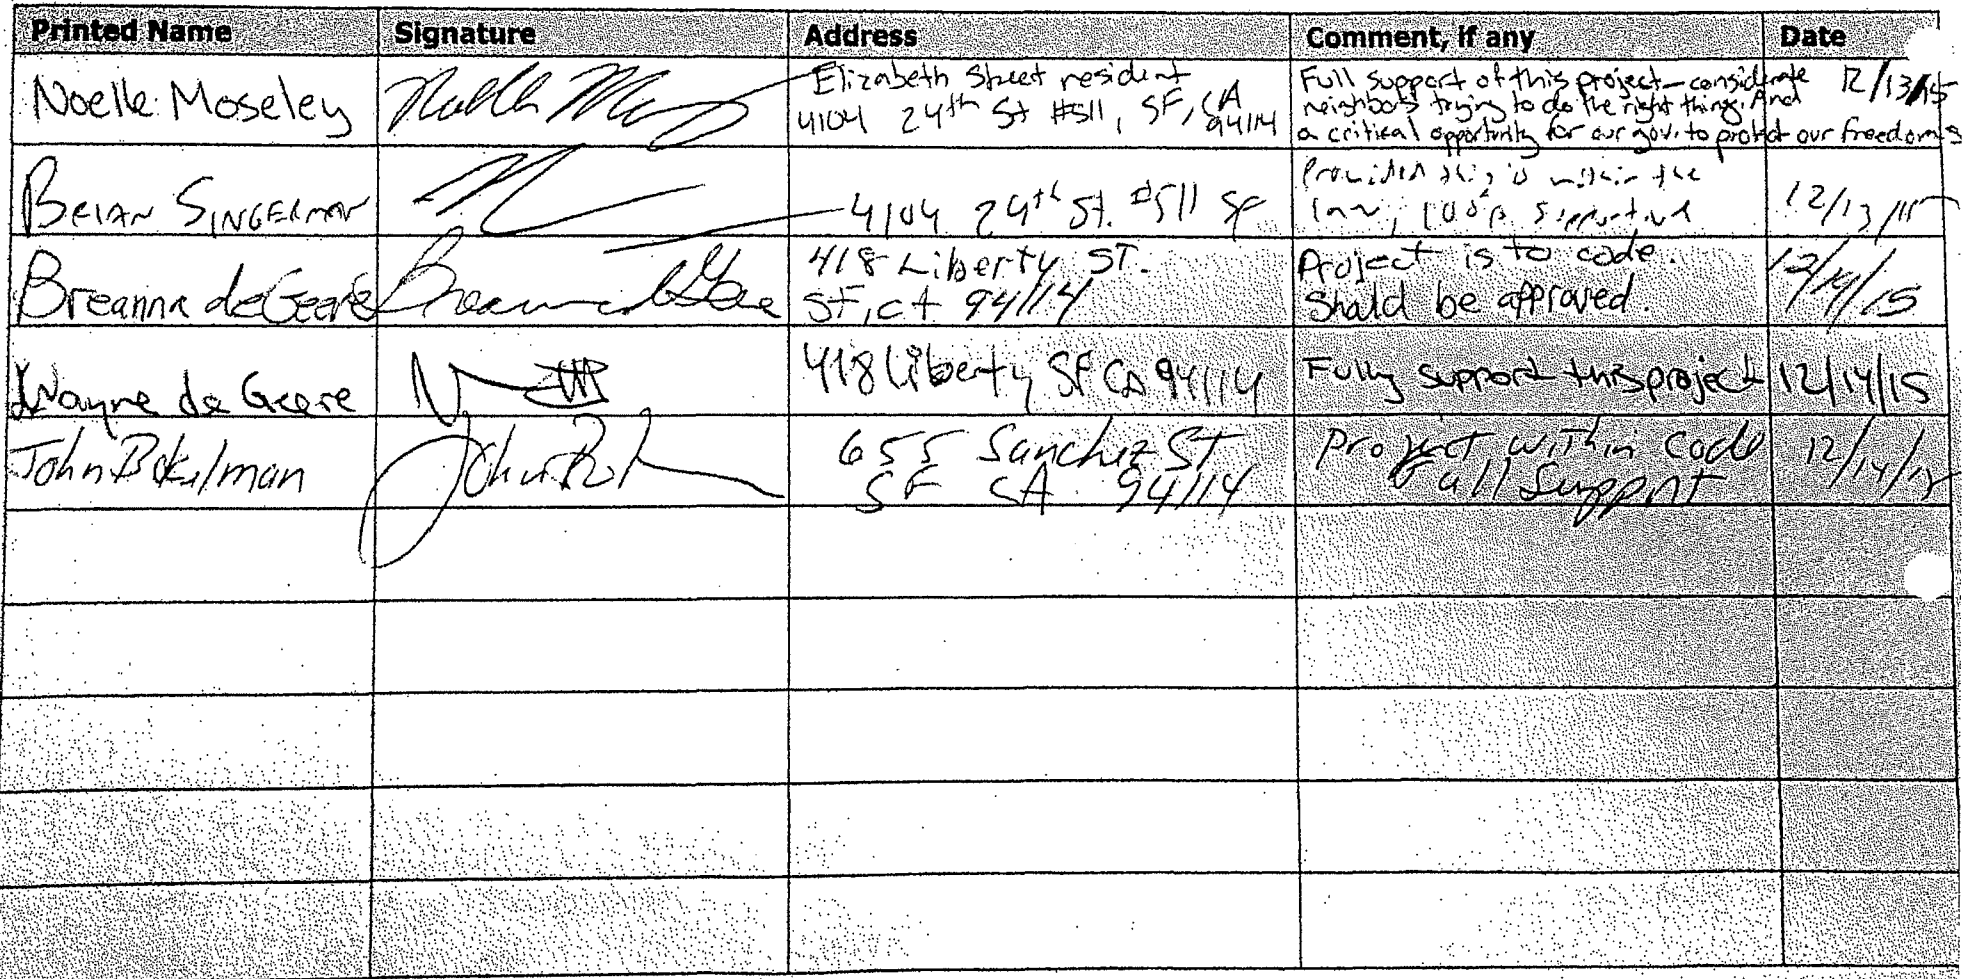 Printed Name Signature Address Comment, if any Date
Noelle Moseley
Elizabeth Street resident
4104 24th St #511, SF, CA
94114
Full support of this project - considerate
neighbors trying to do the right thing. And
a critical opportunity for our gov. to protect our freedoms
12/13/15
Brian Singerman
4104 24th St. #511 SF
Provided this is within the
law, 100% supportive
12/13/15
Breanna deGeere
418 Liberty ST.
SF, CA 94114
Project is to code.
Should be approved.
12/14/15
Wayne de Geere
418 Liberty SF CA 94114
Fully support this project
12/14/15
John
655 Sanchez ST
SF CA 94114
Project within Code
Full Support
12/14/15